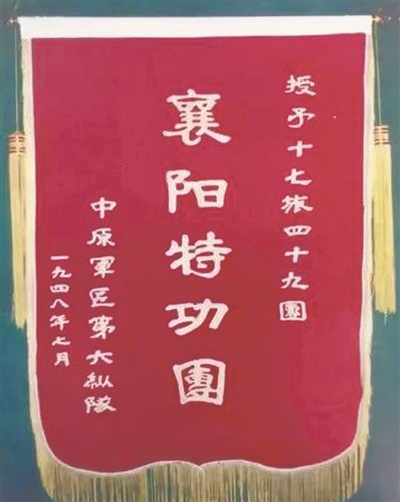 授予十七旅四十九團
襄阳特功團
中原軍区第六纵隊
一九四八年七月